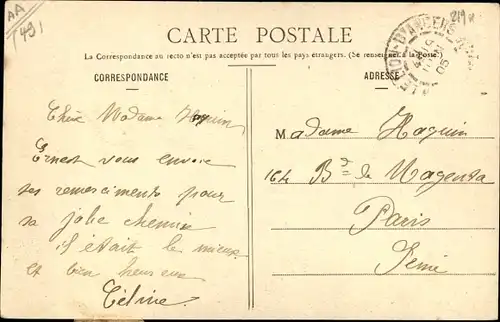 AA
491
CARTE POSTALE
La Correspondance au recto n'est pas acceptée par tous les pays étrangers. (Se renseigner à la Poste).
CORRESPONDANCE
ADRESSE
Chère Madame Haquin
Ernest vous envoie
ses remerciments pour
sa jolie chemise
il était le mieux
et bien heureux
Céline
Madame Haquin
164 Bd de Magenta
Paris
Seine